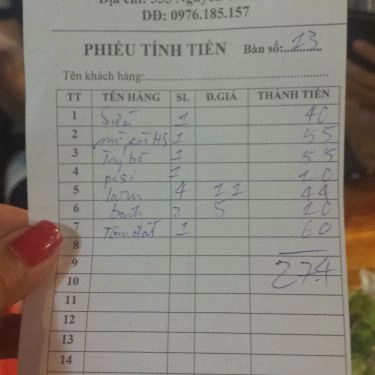 Địa chỉ: 355 Nguyễn
DĐ: 0976.185.157
PHIẾU TÍNH TIỀN Bàn số: 13
Tên khách hàng:
TT TÊN HÀNG SL Đ.GIÁ THÀNH TIỀN
1 Sứa 1 40
2 1 55
3 bò 1 55
4 pepsi 1 10
5 4 11 44
6 bánh 2 5 10
7 Tôm đất 1 60
8
9 274
10
11
12
13
14